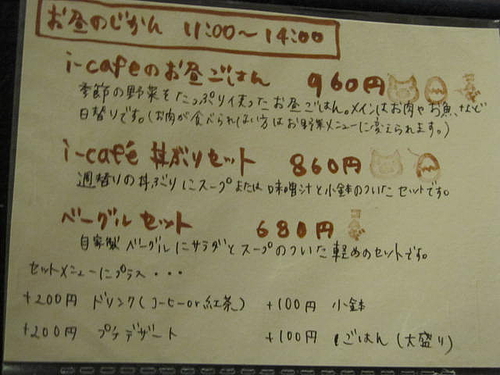 お昼のじかん 11:00〜14:00
i-cafeのお昼ごはん 960円
季節の野菜をたっぷり使ったお昼ごはん。メインはお肉やお魚、など
日替りです。(お肉が食べられない方はお野菜メニューに変えられます。)
i-café 丼ぶりセット 860円
週替りの丼ぶりにスープまたは味噌汁と小鉢のついたセットです。
ベーグルセット 680円
自家製ベーグルにサラダとスープのついた軽めのセットです。
セットメニューにプラス・・・
+200円 ドリンク(コーヒーor紅茶) +100円 小鉢
+200円 プチデザート +100円 ごはん(大盛り)